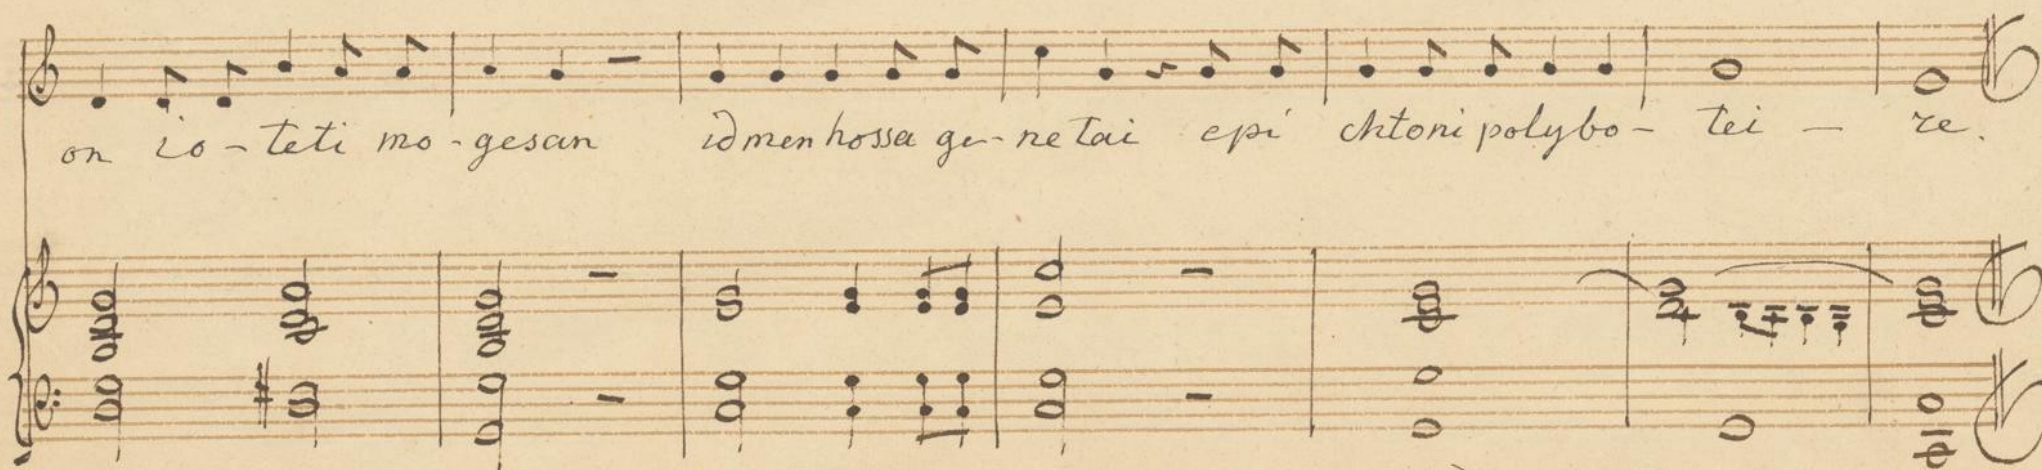 on io - teti mo - gesan idmen hossa ge - netai epi chtoni polybo - tei - re.